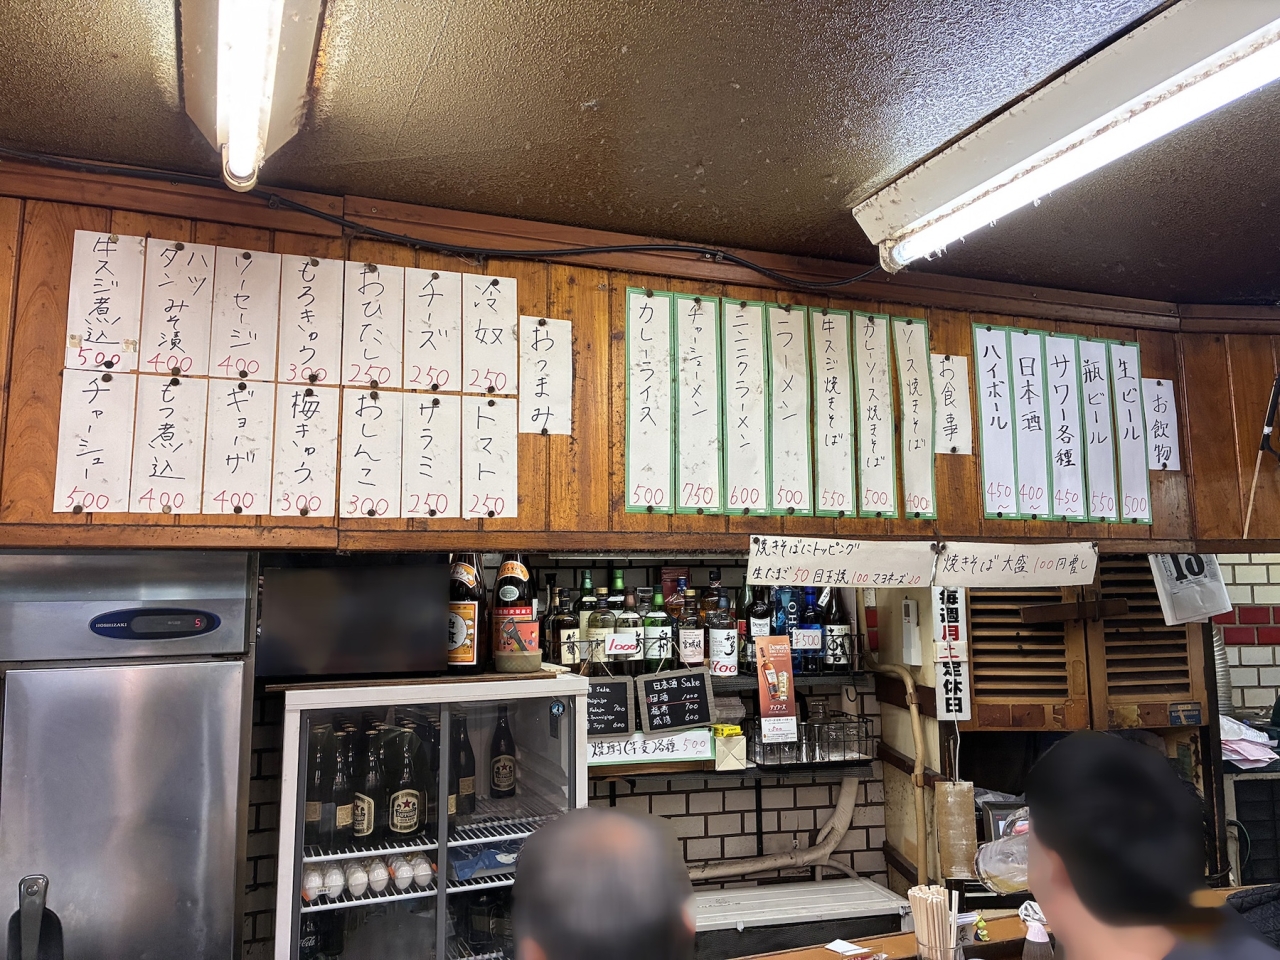 お飲物
生ビール 500
瓶ビール 550
サワー各種 450〜
日本酒 400〜
ハイボール 450〜
お食事
ソース焼きそば 400
カレーソース焼きそば 500
牛スジ焼きそば 550
ラーメン 500
ニンニクラーメン 600
チャーシューメン 750
カレーライス 500
おつまみ
冷奴 250
チーズ 250
おひたし 250
もろきゅう 300
ソーセージ 400
ハツ
タン みそ漬 400
牛スジ煮込 500
トマト 250
サラミ 250
おしんこ 300
梅きゅう 300
ギョーザ 400
もつ煮込 400
チャーシュー 500
焼きそばにトッピング
生たまご50 目玉焼100 マヨネーズ20
焼きそば大盛100円増し
毎週月土定休日
HOSHIZAKI
5
1000
700
¥500
Sake
700
600
日本酒 Sake
1000
700
600
焼酎(芋麦)各種 500〜
Dewar's
SAPPORO
18